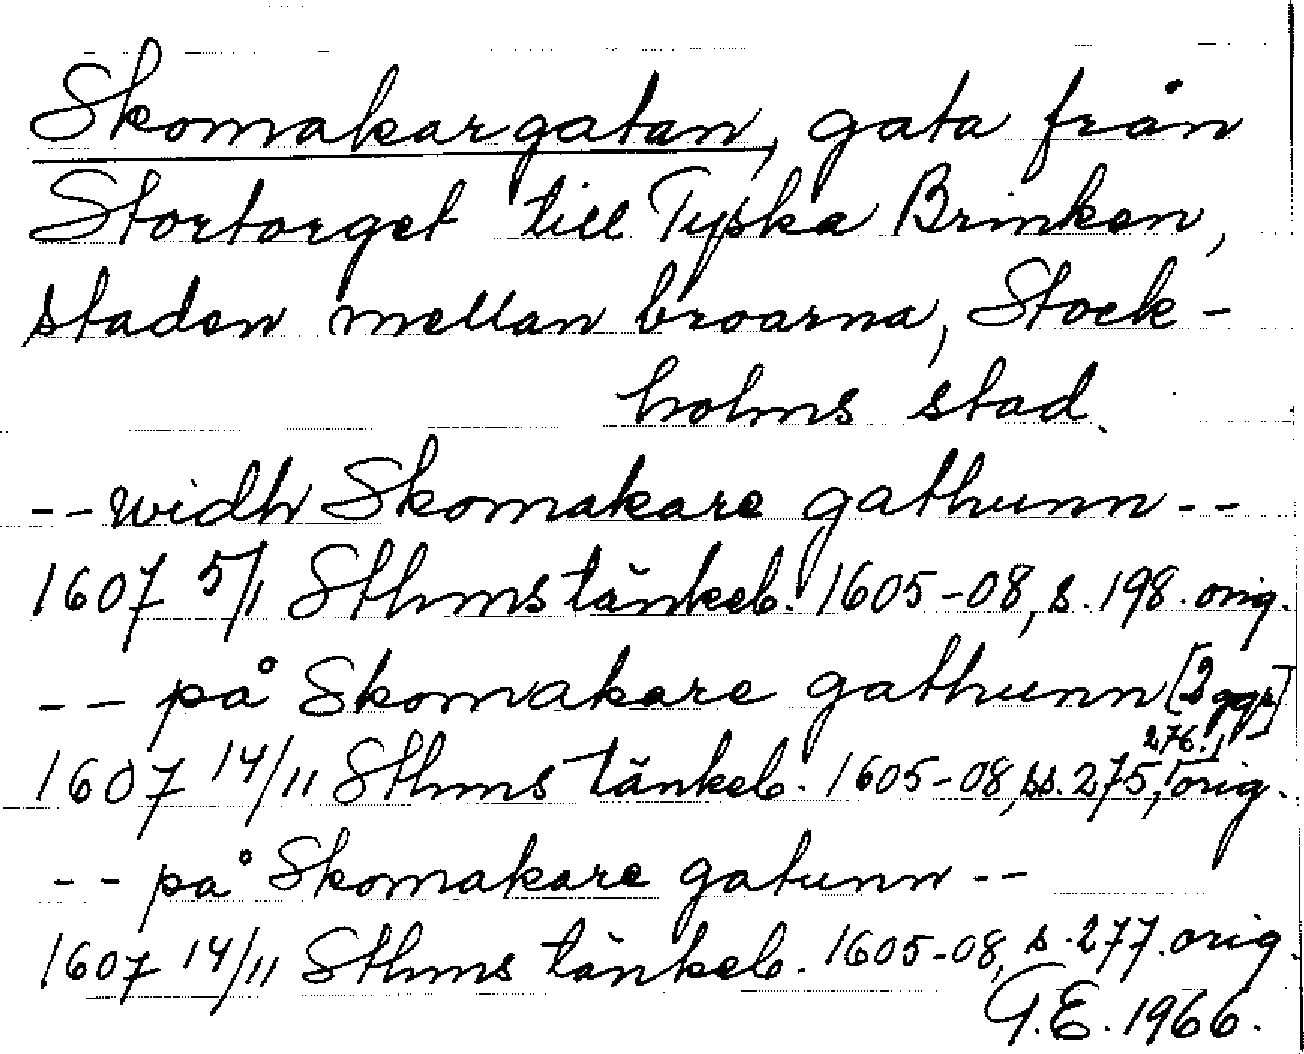 Skomakargatan, gata från
Stortorget till Tyska Brinken,
staden mellan broarna, Stock-
holms stad.
-- widh Skomakare gathunn --
1607 5/11 Sthms tänkeb. 1605-08, s. 198. orig.
-- på Skomakare gathunn [2 ggr]
1607 14/11 Sthms tänkeb. 1605-08, ss. 275, 276., orig.
-- på Skomakare gatunn --
1607 14/11 Sthms tänkeb. 1605-08, s. 277. orig.
G.E. 1966.